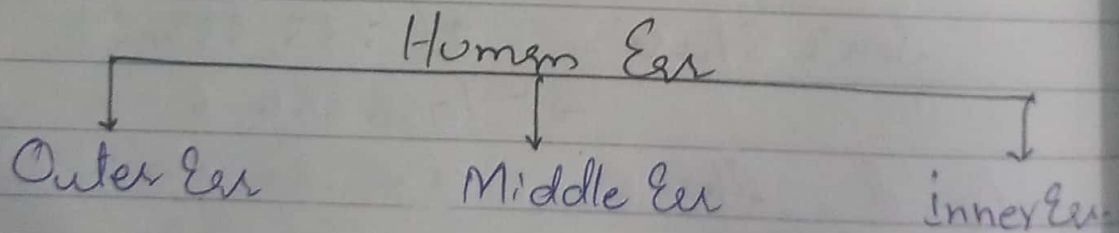 Human Ear
Outer Ear
Middle Ear
inner Ear